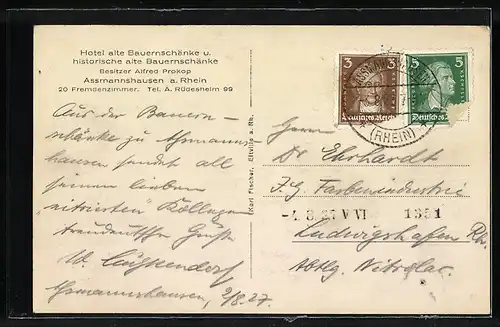 Hotel alte Bauernschänke u.
historische alte Bauernschänke
Besitzer Alfred Prokop
Assmannshausen a. Rhein
20 Fremdenzimmer. Tel. A. Rüdesheim 99
Aus der Bauern-
schänke zu Assmanns
hausen sendet all
seinen lieben
"nitrierten" Kollegen
treudeutsche Grüße
Assmannshausen, 2/8.27.
Karl Fischer, Eltville a. Rh.
3 3
Deutsches Reich
5 5
Deutsches
(RHEIN)
Herrn
Dr Ehrhardt
I. G. Farbenindustrie
V VI 1351
Ludwigshafen Rh.
Abtlg. Nitrolac.